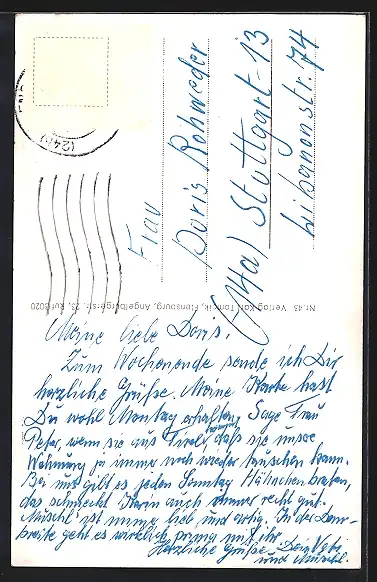 Frau
Doris Rohweder
(14a) Stuttgart-13
Libanonstr. 74
(24b)
Nr. 43 Verlag Karl Tomrik, Flensburg, Angelburgerstr. 23, Ruf 5020
Meine liebe Doris,
Zum Wochenende sende ich Dir
herzliche Grüße. Meine Karte hast
Du wohl Montag erhalten. Sage Frau
Peter, wenn sie aus Tirol kommt, daß sie unsere
Wohnung ja immer noch wieder tauschen kann.
Bei mir gibt es jeden Sonntag Hähnchenbraten,
das schmeckt Karin auch immer recht gut.
"Muschi" ist immer lieb und artig. In der
geht es wirklich prima mit ihr.
Herzliche Grüße Dein Vati
und Muschi.